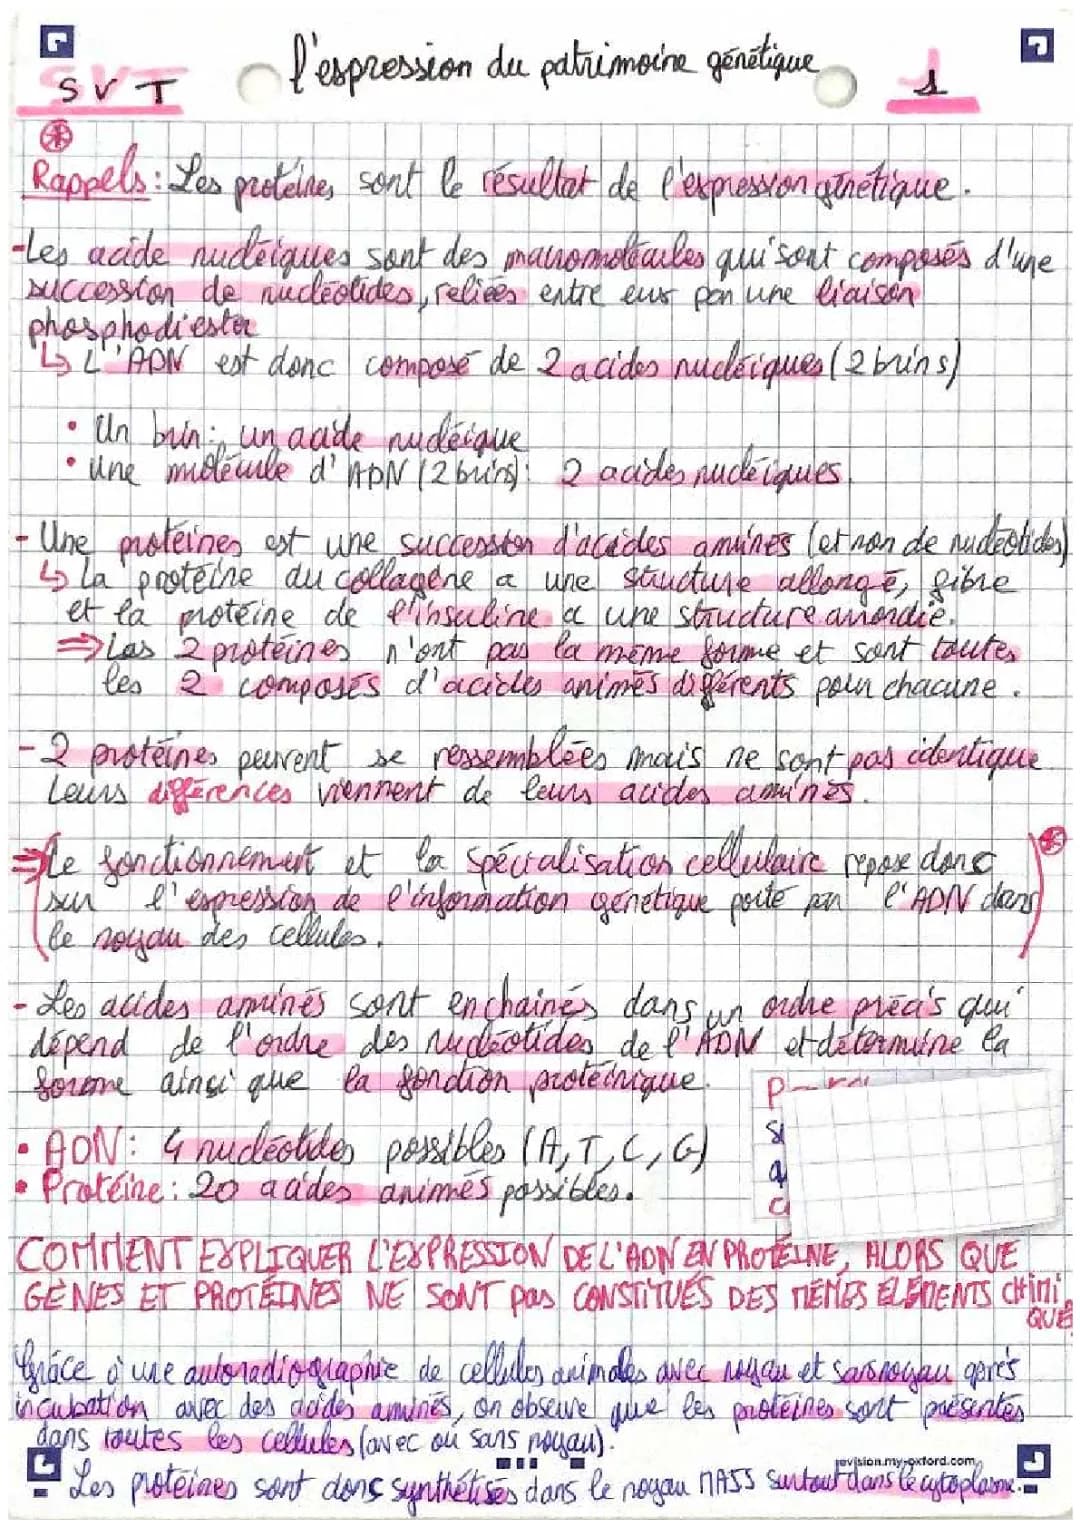 l'expression du patrimoine génétique
SVT
1
Rappels : Les protéines sont le résultat de l'expression génétique.
- Les acide nucléiques sont des macromolécules qui sont composés d'une
succession de nucléotides, reliées entre eux par une liaison
phosphodiester
↳ L'ADN est donc composé de 2 acides nucléiques (2 brins)
• Un brin : un acide nucléique
• Une molécule d'ADN (2 brins) : 2 acides nucléiques.
- Une protéines est une succession d'acides aminés (et non de nucléotides)
↳ La protéine du collagène a une structure allongé, fibre
et la protéine de l'insuline a une structure arrondie.
⇒ Las 2 protéines n'ont pas la même forme et sont toutes
les 2 composés d'acides animés différents pour chacune.
- 2 protéines peuvent se ressemblées mais ne sont pas identique
Leurs différences viennent de leurs acides aminés.
⇒ Le fonctionnement et la spécialisation cellulaire repose donc
sur l'expression de l'information génétique porté par l'ADN dans
le noyau des cellules.
- Les acides aminés sont enchaînés dans un ordre précis qui
dépend de l'ordre des nucléotides de l'ADN et détermine la
forme ainsi que la fonction protéinique.
• ADN : 4 nucléotides possibles (A, T, C, G)
• Protéine : 20 acides animés possibles.
COMMENT EXPLIQUER L'EXPRESSION DE L'ADN EN PROTÉINE, ALORS QUE
GÈNES ET PROTÉINES NE SONT pas CONSTITUÉS DES MÊMES ÉLÉMENTS CHIMI
QUE
Grâce à une autoradiographie de cellules animales avec noyau et sans noyau après
incubation avec des acides aminés, on observe que les protéines sont présentes
dans toutes les cellules (avec ou sans noyau).
revision.my-oxford.com
Les protéines sont donc synthétisés dans le noyau MAIS surtout dans le cytoplasme.